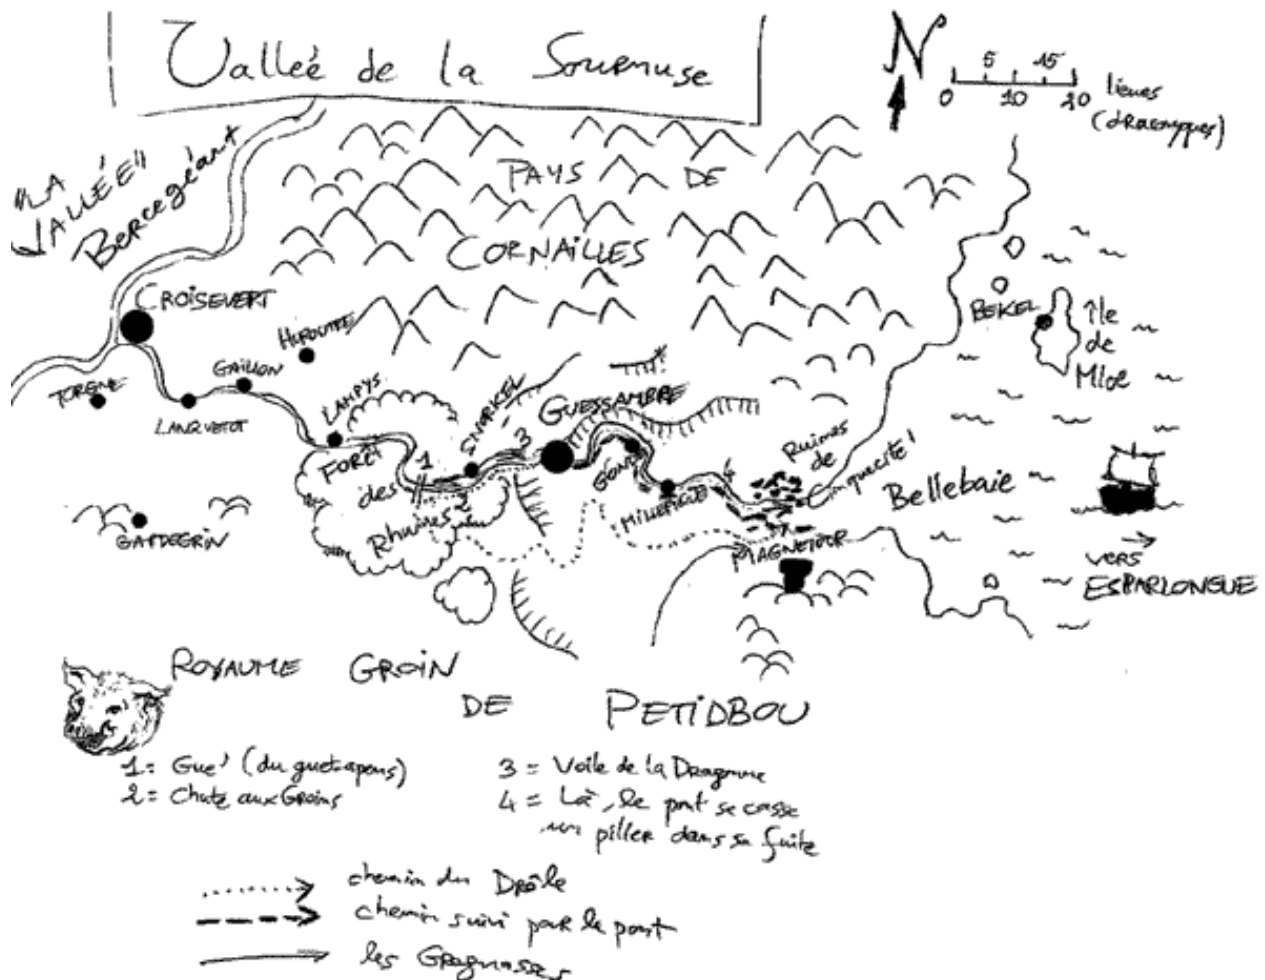 Valleé de la Sourmuse
N
5 15
0 10 20
lieues
(draconyques)
"LA
VALLÉE"
Bercegéant
PAYS DE
CORNAILLES
CROISEVERT
HUROUTRE
GAILLON
TORGNE
LANQUETOT
LAMPYS
SNORKEL
GUESSAMBRE
FORÊT
des
Rhuines
1
2
3
4
GOND
MILLEMGUE
Ruines
de
Cinquecité
Bellebaie
BEKEL
île
de
Mloé
GARDEGRIN
MAGNETOUR
vers
ESPARLONGUE
ROYAUME GROIN
DE PETIDBOU
1 = Gué (du guet-apens)
2 = Chute aux Groins
3 = Voile de la Dragonne
4 = Là, le pont se casse
un pilier dans sa fuite
chemin du Drôle
chemin suivi par le pont
les Grognasses